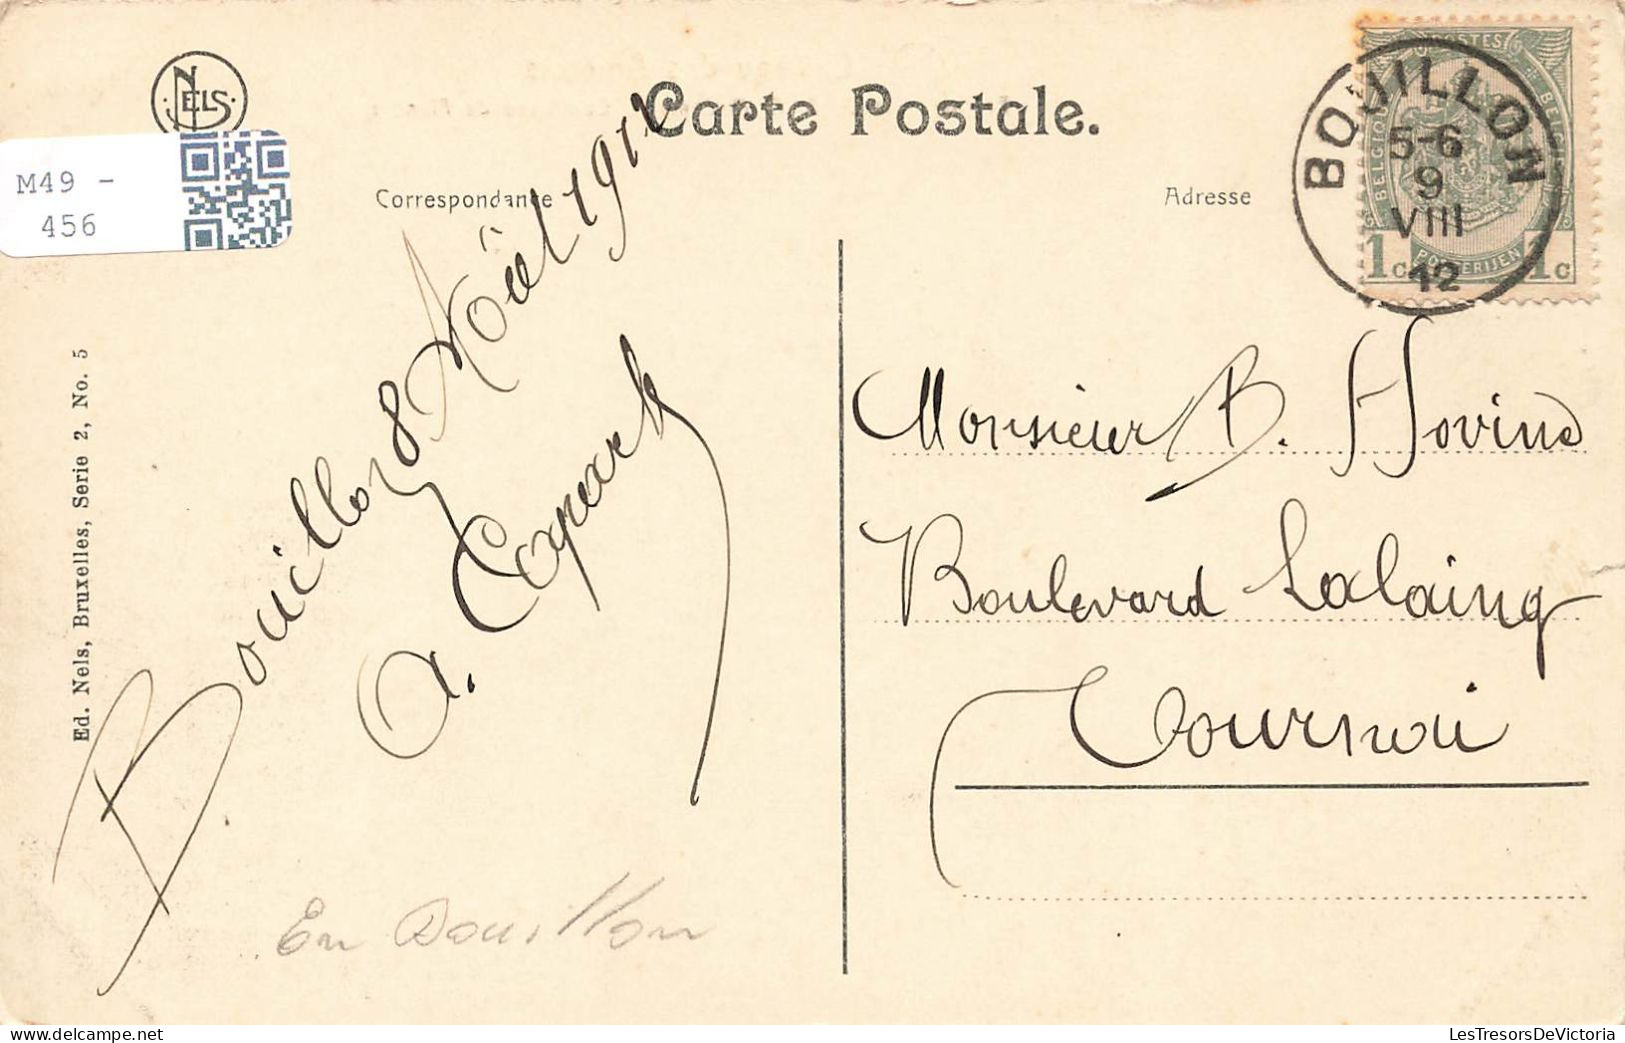 NELS
Carte Postale.
M49 -
456
Correspondance
Adresse
POSTES
BELGIQUE
BELGIË
1c POSTERIJEN 1c
BOUILLON
5-6
9
VIII
12
Ed. Nels, Bruxelles, Serie 2, No. 5
Bouillon 8 Août 1912
Monsieur B. Hovine
Boulevard Lalaing
Tournai
En Bouillon
LesTresorsDeVictoria